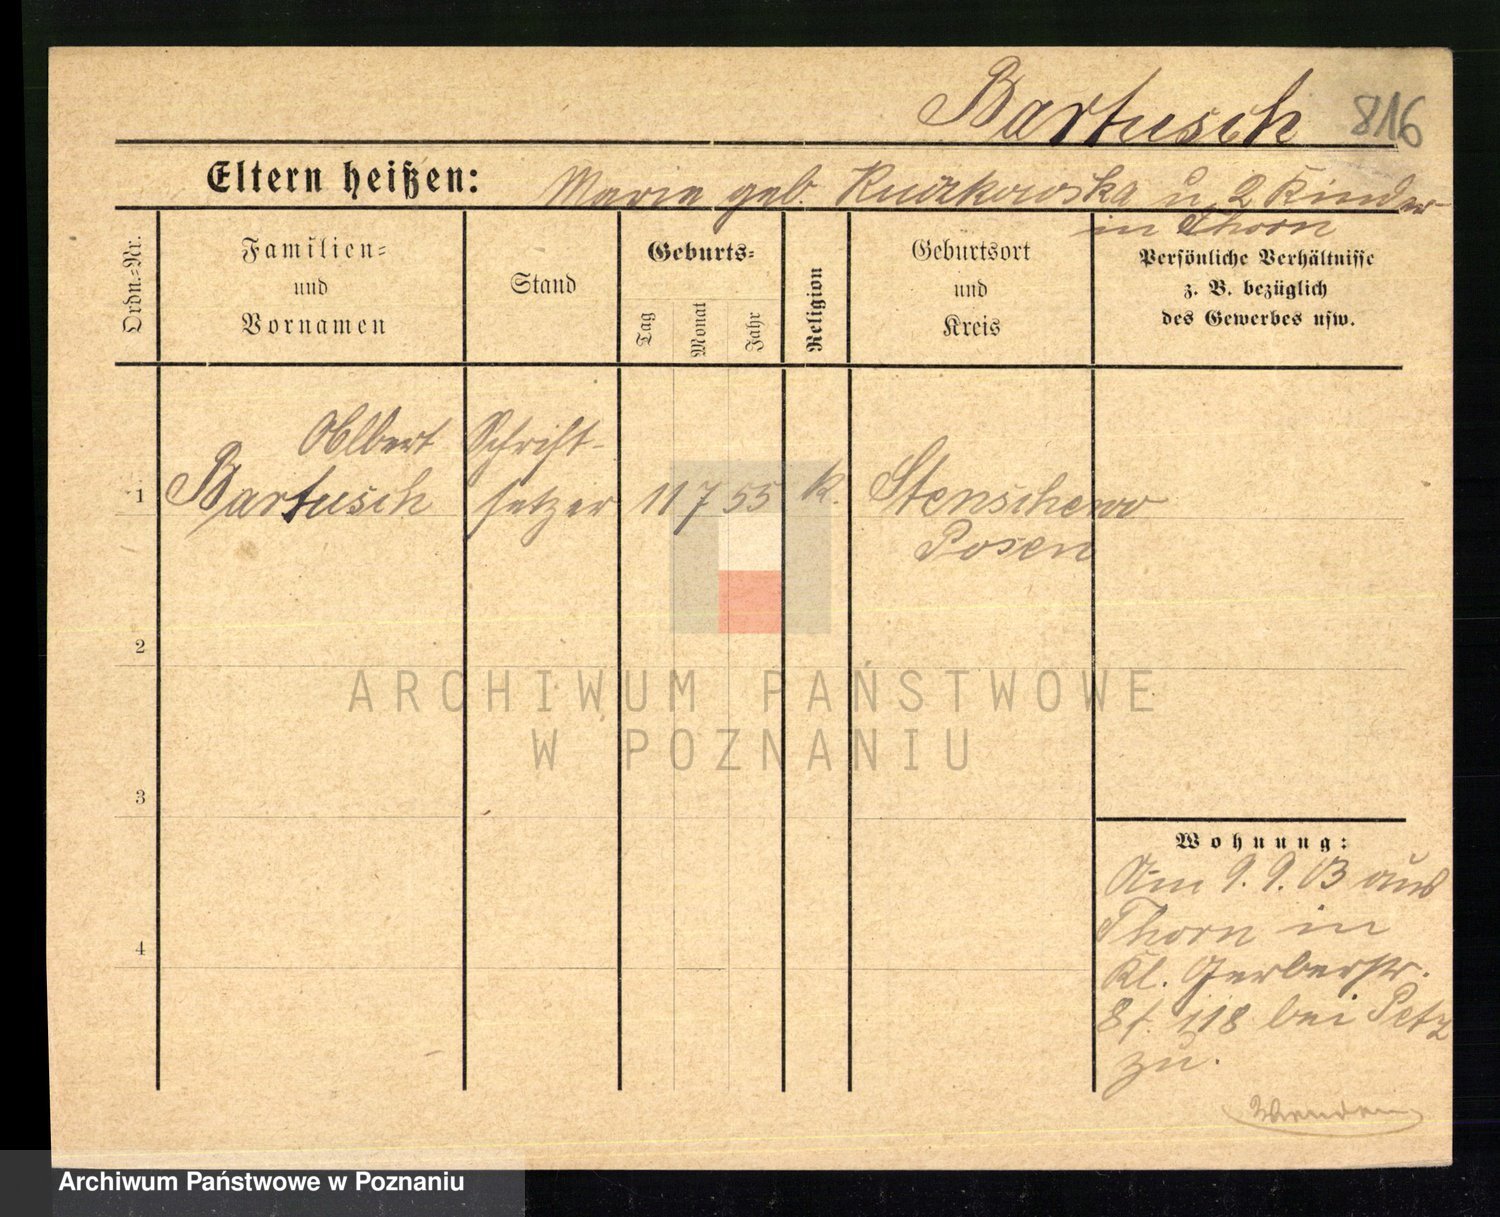 Bartusch 816
Eltern heißen: Marie geb. u. 2 Kinder
in Thorn
Ordn.=Nr.
Familien=
und
Vornamen
Stand
Geburts=
Tag
Monat
Jahr
Religion
Geburtsort
und
Kreis
Persönliche Verhältnisse
z. B. bezüglich
des Gewerbes usw.
1
Albert
Bartusch
Schrift-
setzer
11 7 55
k.
Stenschewo
Posen
2
3
4
Wohnung:
Am 9. 9. 03 aus
Thorn in
Kl. Gerberstr.
8 118 bei Petz
zu.
Wenden
ARCHIWUM PAŃSTWOWE
W POZNANIU
Archiwum Państwowe w Poznaniu